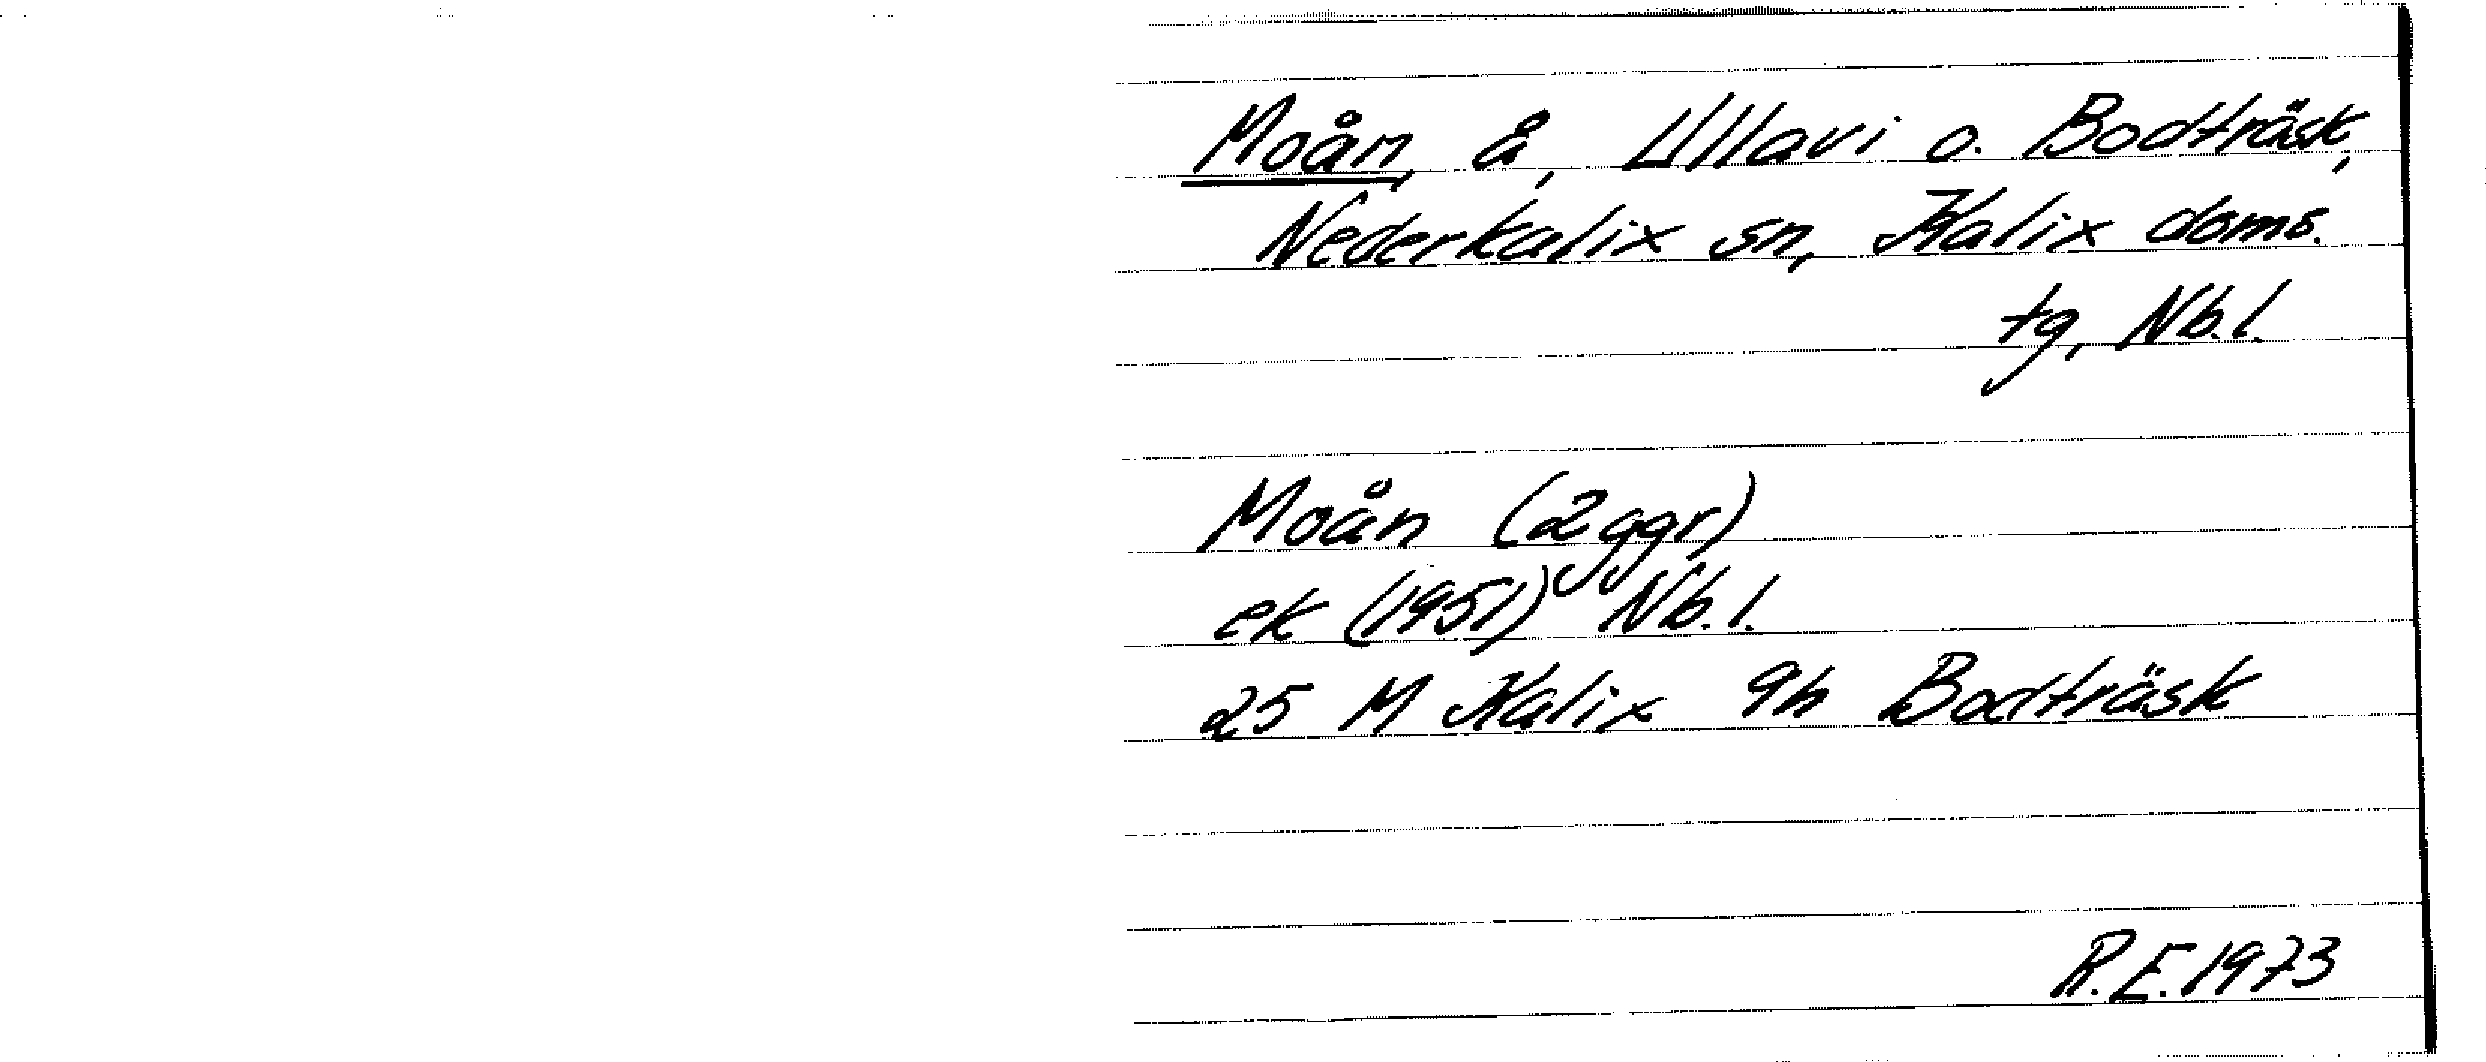 Moån, å, Ullavi o. Bodträsk,
Nederkalix sn, Kalix doms.
tg, Nb.l.
Moån (2 ggr)
ek (1951) Nb.l.
25 M Kalix 9h Bodträsk
R.E. 1973